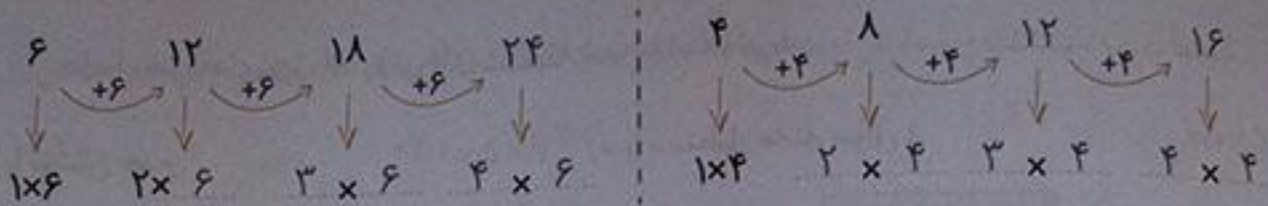 ۶ ۱۲ ۱۸ ۲۴
+۶ +۶ +۶
۱×۶ ۲× ۶ ۳ × ۶ ۴ × ۶
۴ ۸ ۱۲ ۱۶
+۴ +۴ +۴
۱×۴ ۲ × ۴ ۳ × ۴ ۴ × ۴